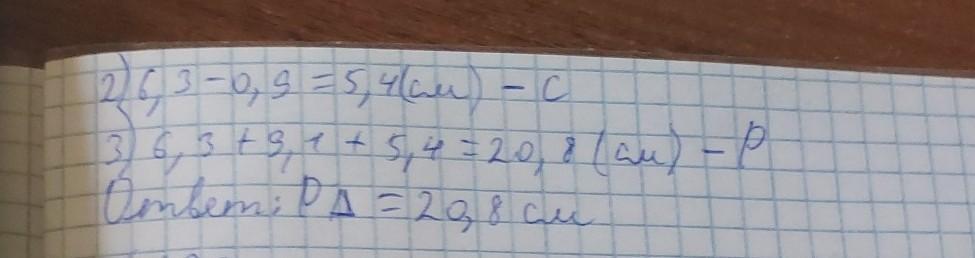 2) 6,3 - 0,9 = 5,4 (см) - С
3) 6,3 + 9,1 + 5,4 = 20,8 (см) - Р
Ответ: Р Δ = 20,8 см